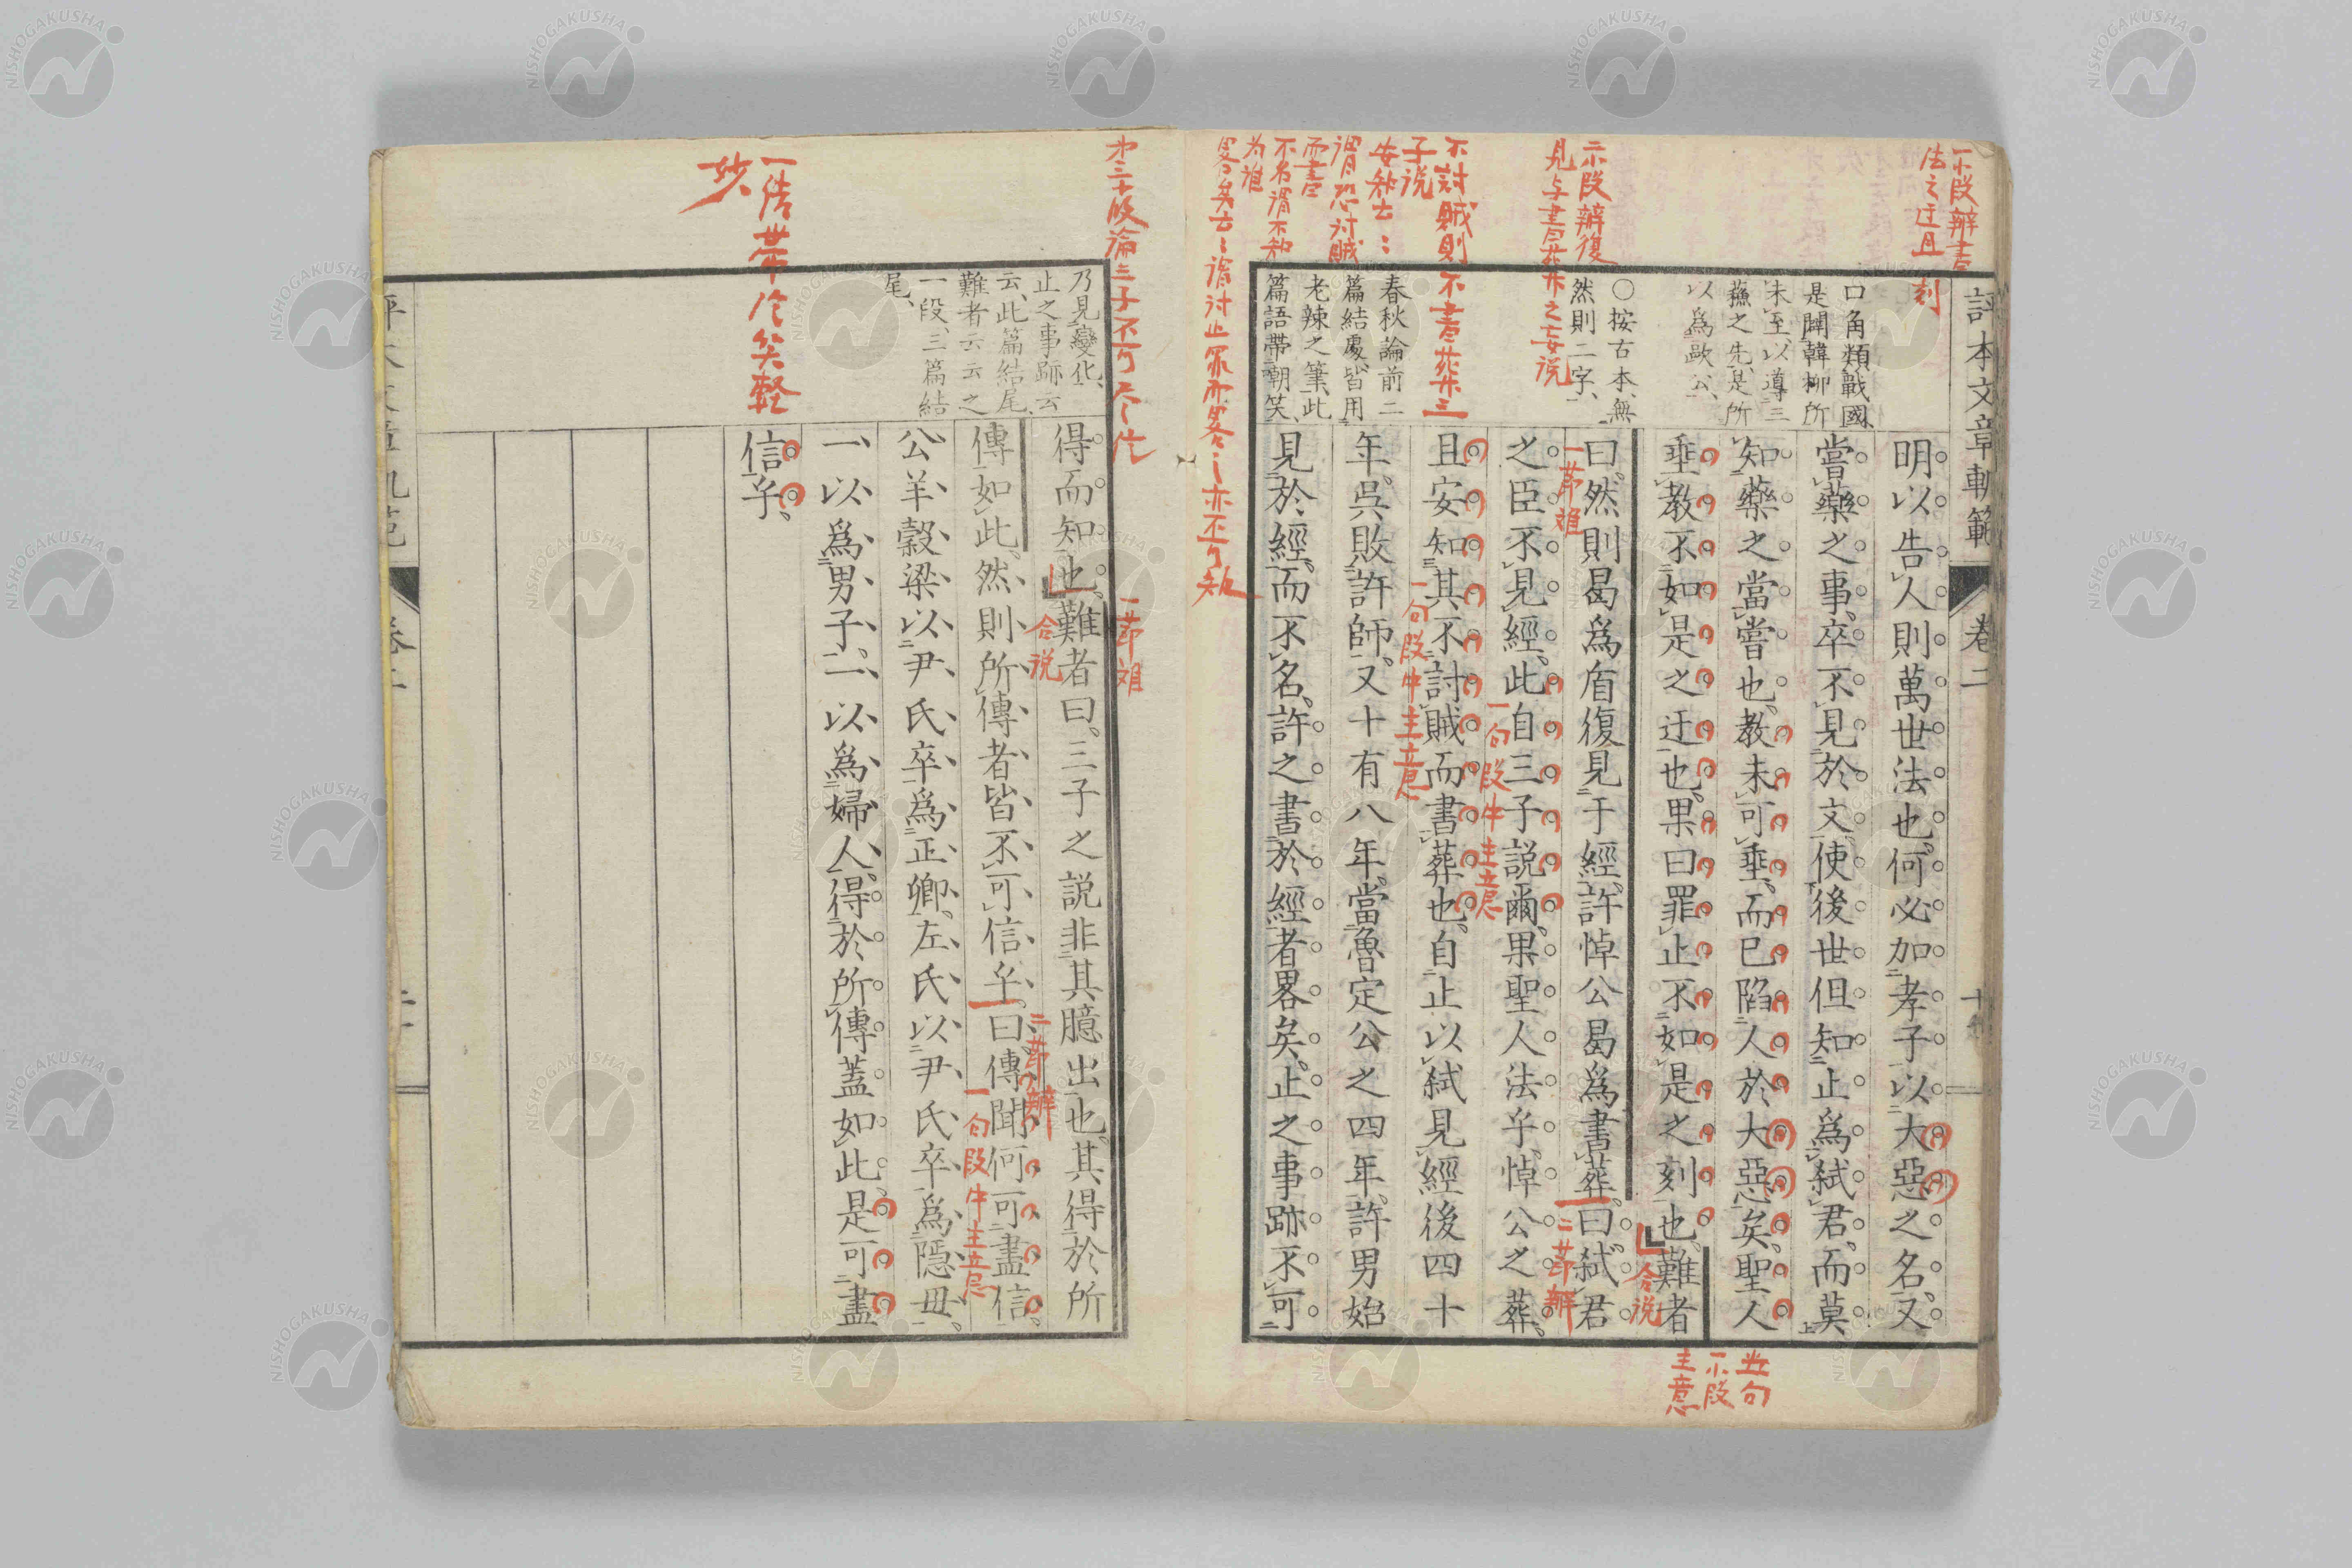 一小段辨書
法之迂且
刻
評本文章軌範
卷二
口角類戰國
是闢韓柳所
未至以導三
蘇之先是所
以爲歐公
明以告人則萬世法也何必加孝子以大惡之名又
嘗藥之事卒不見於文使後世但知止爲弒君而莫
知藥之當嘗也教未可垂而已陷人於大惡矣聖人
垂教不如是之迂也果曰罪止不如是之刻也難者
合説
主意
二小段辨復
見与書葬之妄説
○按古本無
然則二字
曰然則曷爲盾復見于經許悼公曷爲書葬曰弒君
一節難
二節辨
之臣不見經此自三子說爾果聖人法乎悼公之葬
一句段中主意
不討賊則不書葬三
子説
安知云〻
謂恐討賊
而書
不名謂不知
为誰
畧矣云〻謂討止罪而畧〻亦不可知
春秋論前二
篇結處皆用
老辣之筆此
篇語帶朝笑
且安知其不討賊而書葬也自止以弒見經後四十
一句段中主意
年吳敗許師又十有八年當魯定公之四年許男始
見於經而不名許之書於經者畧矣止之事跡不可
乃見變化
止之事跡云
云此篇結尾
難者云云之
一段三篇結
尾
得而知也難者曰三子之說非其臆出也其得於所
合説
一節難
傳如此然則所傳者皆不可信乎曰傳聞何可盡信
二節辨
一句段中主意
公羊穀梁以尹氏卒爲正卿左氏以尹氏卒爲隱母
一以爲男子一以爲婦人得於所傳蓋如此是可盡
信乎
妙